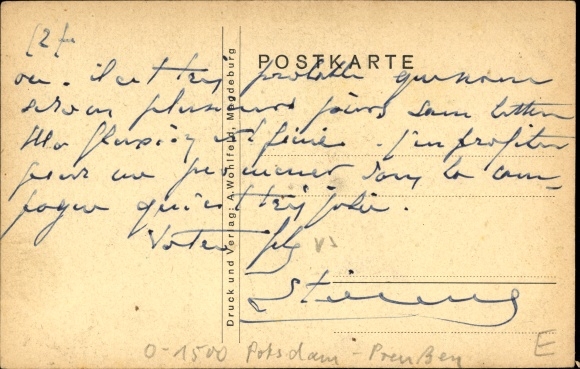 (2)
POSTKARTE
ou. il est très probable que nous
serons plusieurs jours sans lettres
Ma fluxion est finie. J'en profite
pour me promener dans la cam-
pagne qui est très jolie.
Votre fils
Etienne
Druck und Verlag: A. Wohlfeld, Magdeburg
0-1500 Potsdam - Preußen
E